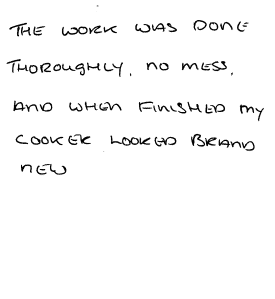 THE WORK WAS DONE
THOROUGHLY, NO MESS,
AND WHEN FINISHED MY
COOKER LOOKED BRAND
NEW